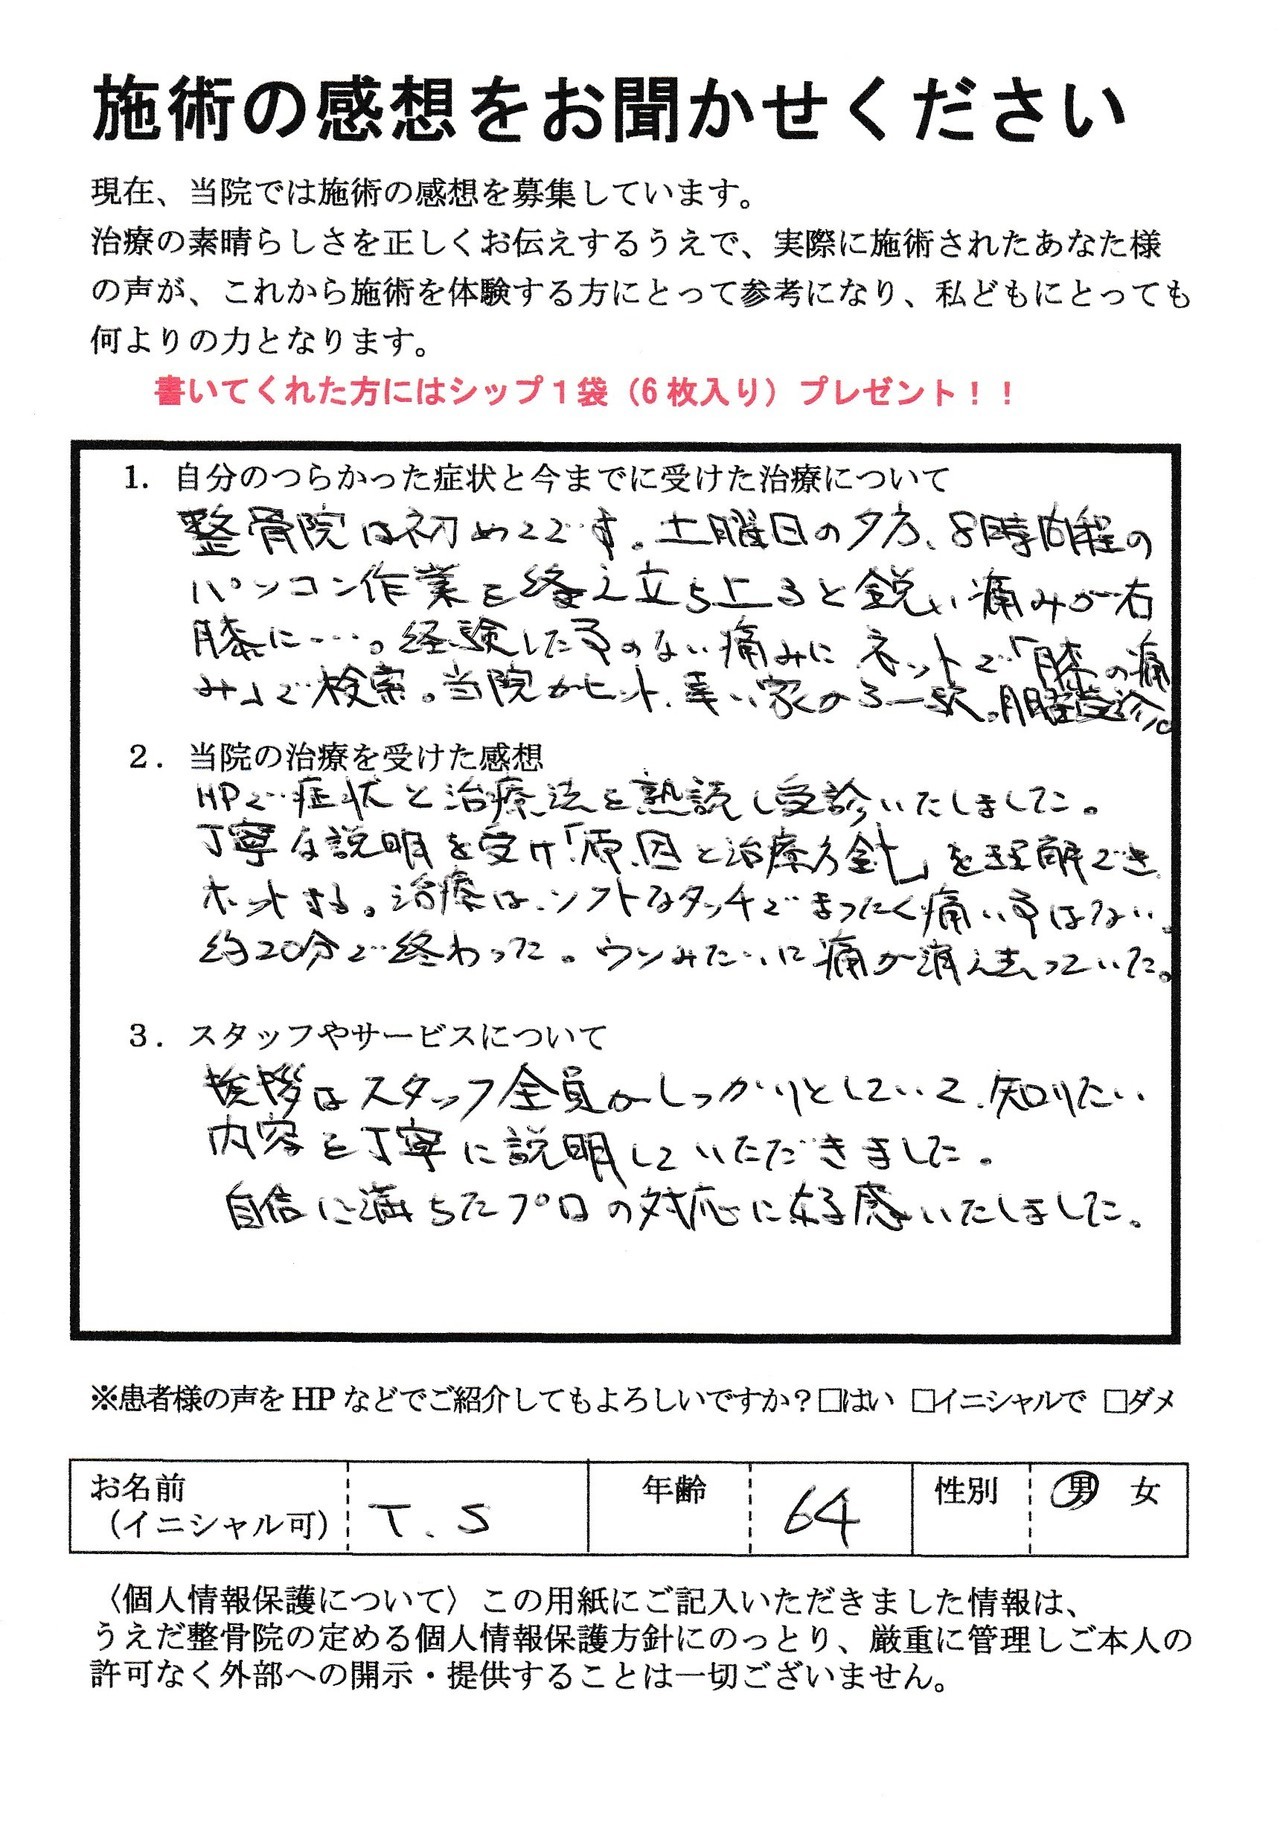 施術の感想をお聞かせください
現在、当院では施術の感想を募集しています。
治療の素晴らしさを正しくお伝えするうえで、実際に施術されたあなた様
の声が、これから施術を体験する方にとって参考になり、私どもにとっても
何よりの力となります。
書いてくれた方にはシップ１袋（6 枚入り）プレゼント！！
1. 自分のつらかった症状と今までに受けた治療について
整骨院は初めてです。土曜日の夕方、8時間程の
パソコン作業を終え立ち上ると鋭い痛みが右
膝に…。経験した事のない痛みに ネットで「膝の痛
み」で検索。当院がヒット、幸い家から一駅。月曜受診。
２．当院の治療を受けた感想
HPで症状と治療法を熟読し受診いたしました。
丁寧な説明を受け「原因と治療方針」を理解でき
ホットする。治療は、ソフトなタッチでまったく痛い事はない。
約20分で終わった。ウソみたいに痛が消え去っていた。
３．スタッフやサービスについて
挨拶はスタッフ全員がしっかりとしていて、知りたい
内容を丁寧に説明していただきました。
自信に満ちたプロの対応に好感いたしました。
※患者様の声を HP などでご紹介してもよろしいですか？□はい □イニシャルで □ダメ
お名前
（イニシャル可） T.S 年齢 64 性別 男 女
〈個人情報保護について〉この用紙にご記入いただきました情報は、
うえだ整骨院の定める個人情報保護方針にのっとり、厳重に管理しご本人の
許可なく外部への開示・提供することは一切ございません。